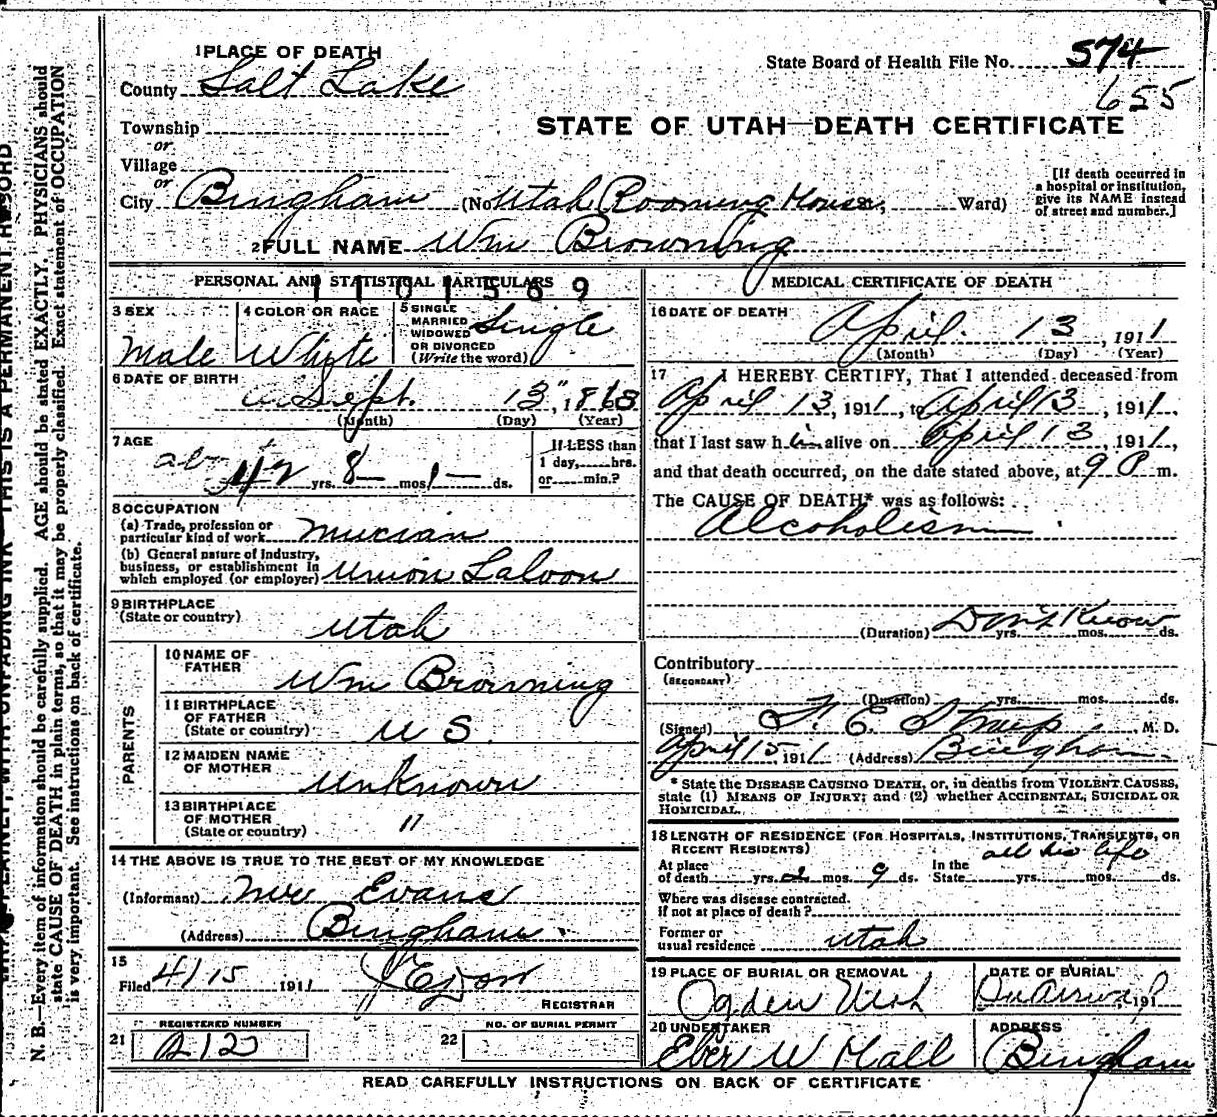 1 PLACE OF DEATH
State Board of Health File No. 574
655
County Salt Lake
STATE OF UTAH—DEATH CERTIFICATE
Township
or
Village
or
City Bingham (No. Utah Rooming House, Ward)
[If death occurred in a hospital or institution, give its NAME instead of street and number.]
2 FULL NAME Wm Browning
PERSONAL AND STATISTICAL PARTICULARS
1101569
3 SEX Male
4 COLOR OR RACE White
5 SINGLE MARRIED WIDOWED OR DIVORCED (Write the word) Single
6 DATE OF BIRTH Sept. 13", 1868
(Month) (Day) (Year)
7 AGE abt 42 yrs. 8 mos. ds.
If LESS than 1 day, hrs. or min.?
8 OCCUPATION
(a) Trade, profession or particular kind of work Mucian
(b) General nature of Industry, business, or establishment in which employed (or employer) Union Saloon
9 BIRTHPLACE (State or country) Utah
PARENTS
10 NAME OF FATHER Wm Browning
11 BIRTHPLACE OF FATHER (State or country) U S.
12 MAIDEN NAME OF MOTHER Unknown
13 BIRTHPLACE OF MOTHER (State or country) "
14 THE ABOVE IS TRUE TO THE BEST OF MY KNOWLEDGE
(Informant) Evans
(Address) Bingham.
15
Filed 4/15 1911
REGISTRAR
REGISTERED NUMBER
21 212
NO. OF BURIAL PERMIT
22
MEDICAL CERTIFICATE OF DEATH
16 DATE OF DEATH April 13, 1911
(Month) (Day) (Year)
17 I HEREBY CERTIFY, That I attended deceased from
April 13, 1911, to April 13, 1911,
that I last saw h im alive on April 13, 1911,
and that death occurred, on the date stated above, at 9 P m.
The CAUSE OF DEATH* was as follows:
Alcoholism.
(Duration) Don't Know yrs. mos. ds.
Contributory
(SECONDARY)
(Duration) yrs. mos. ds.
(Signed) F. E. Straup, M. D.
April 15, 1911 (Address) Bingham
* State the DISEASE CAUSING DEATH, or, in deaths from VIOLENT CAUSES,
state (1) MEANS OF INJURY; and (2) whether ACCIDENTAL, SUICIDAL OR
HOMICIDAL.
18 LENGTH OF RESIDENCE (FOR HOSPITALS, INSTITUTIONS, TRANSIENTS, OR
RECENT RESIDENTS)
all his life
At place of death yrs. 2 mos. 9 ds. In the State yrs. mos. ds.
Where was disease contracted.
if not at place of death?
Former or usual residence Utah
19 PLACE OF BURIAL OR REMOVAL Ogden Utah
DATE OF BURIAL 191
20 UNDERTAKER Eber W Hall
ADDRESS Bingham
READ CAREFULLY INSTRUCTIONS ON BACK OF CERTIFICATE
WRITE PLAINLY, WITH UNFADING INK—THIS IS A PERMANENT RECORD
N. B.—Every item of information should be carefully supplied. AGE should be stated EXACTLY. PHYSICIANS should
state CAUSE OF DEATH in plain terms, so that it may be properly classified. Exact statement of OCCUPATION
is very important. See instructions on back of certificate.